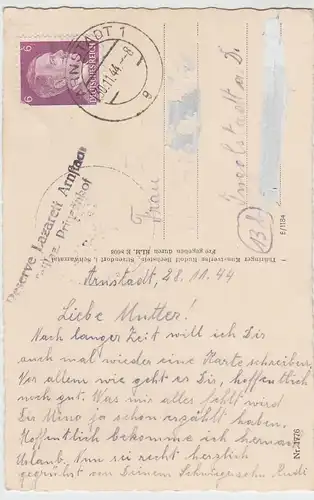 6 6
DEUTSCHES REICH
ARNSTADT 1
30.11.44.-8
g
Reserve Lazarett Arnstadt
Prinzenhof
Frau
Ingolstadt a. D.
(13b)
E/1184
Thüringer Kunstverlag
Frei gegeben durch RLM
Nr. 1776
Arnstadt, 28.11.44
Liebe Mutter!
Nach langer Zeit will ich Dir
auch mal wieder eine Karte schreiben,
Vor allem wie geht es Dir, hoffentlich
noch gut. Was mir alles fehlt wird
Dir Mina ja schon erzählt haben.
Hoffentlich bekomme ich hernach
Urlaub. Nun sei recht herzlich
gegrüßt von Deinem Schwiegersohn Rudi